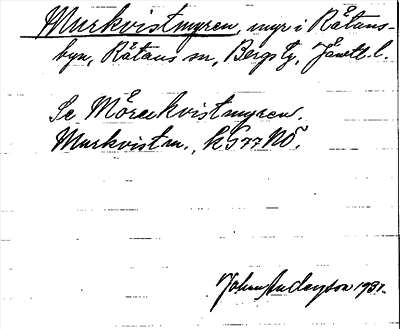 Murkvistmyren, myr i Råtans-
byn, Råtans sn, Bergs tg, Jämtl. l.
Se Mörckvistmyren.
Murkvistm., kG77NÖ.
John Anderzon 1931.